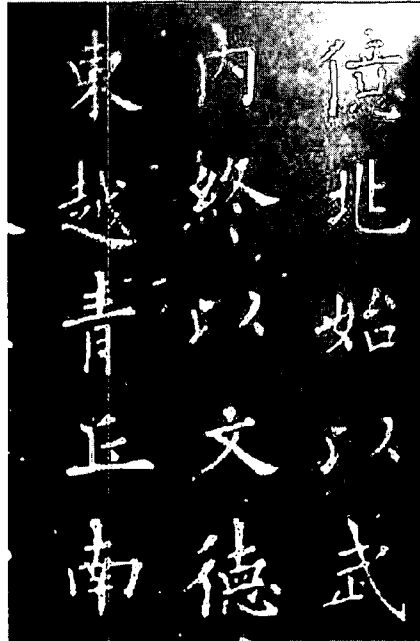 億兆始以武
内終以文德
東越青丘南